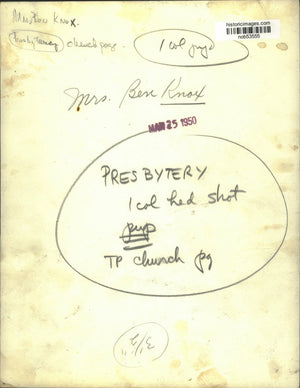 Knox.
historicimages.com
nc653555
Presbytery church pg.
1 col
Mrs. Ben Knox
MAR 25 1950
PRESBYTERY
1 col hed shot
TP church pg
3 1/2"